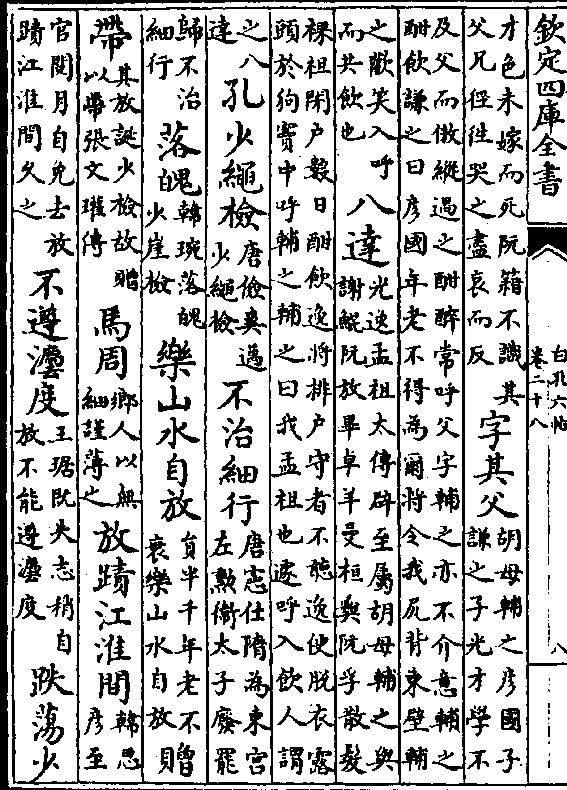 欽定四庫全書
白孔六帖
卷二十八
八
才色未嫁而死阮籍不識其
父兄徑往哭之盡哀而反
字其父
胡母輔之彥國子
謙之子光才學不
及父而傲縱過之酣醉常呼父字輔之亦不介意輔之
酣飲謙之曰彥國年老不得為爾將令我尻背東壁輔
之歡笑入呼
而共飲也
八達
光逸孟祖太傅辟至屬胡母輔之與
謝鯤阮放畢卓羊曼桓與阮孚散髮
裸袒閉户數日酣飲逸將排户守者不聽逸便脱衣露
頭於狗竇中呼輔之輔之曰我孟祖也遽呼入飲人謂
之八
達
孔少繩檢
唐儉爽邁
少繩檢
不治細行
唐憲仕隋為東宮
左勲衛太子廢罷
歸不治
細行
落魄
韓琬落魄
少崖檢
樂山水自放
負半千年老不
衰樂山水自放
貲
帶
其放誕少檢故贈
以帶張文瓘傳
馬周
鄉人以無
細謹薄之
放蹟江淮間
韓思
彥至
官閱月自免去放
蹟江淮間久之
不遵灋度
王琚既失志稍自
放不能遵灋度
跌蕩少